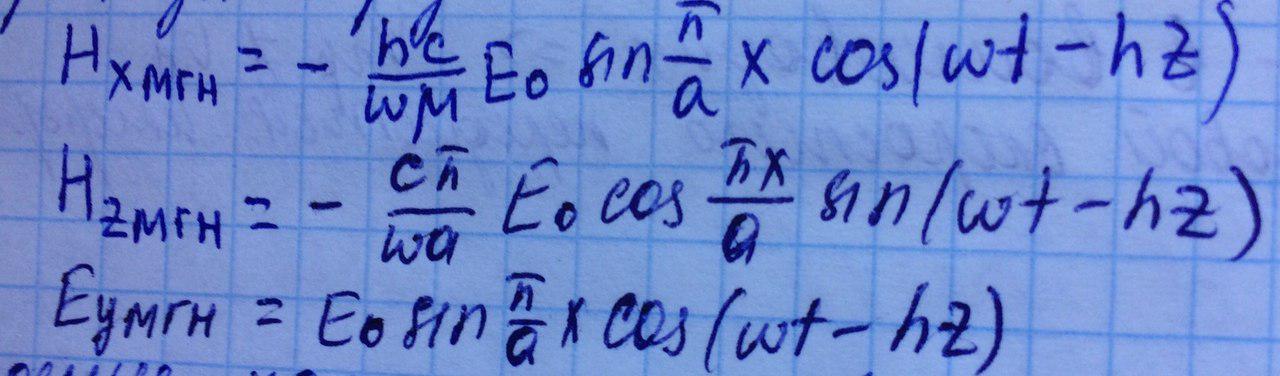 H_xмгн = - hc/ωμ E₀ sin π/a x cos(ωt - hz)
H_zмгн = - cπ/ωa E₀ cos πx/a sin(ωt - hz)
E_yмгн = E₀ sin π/a x cos(ωt - hz)